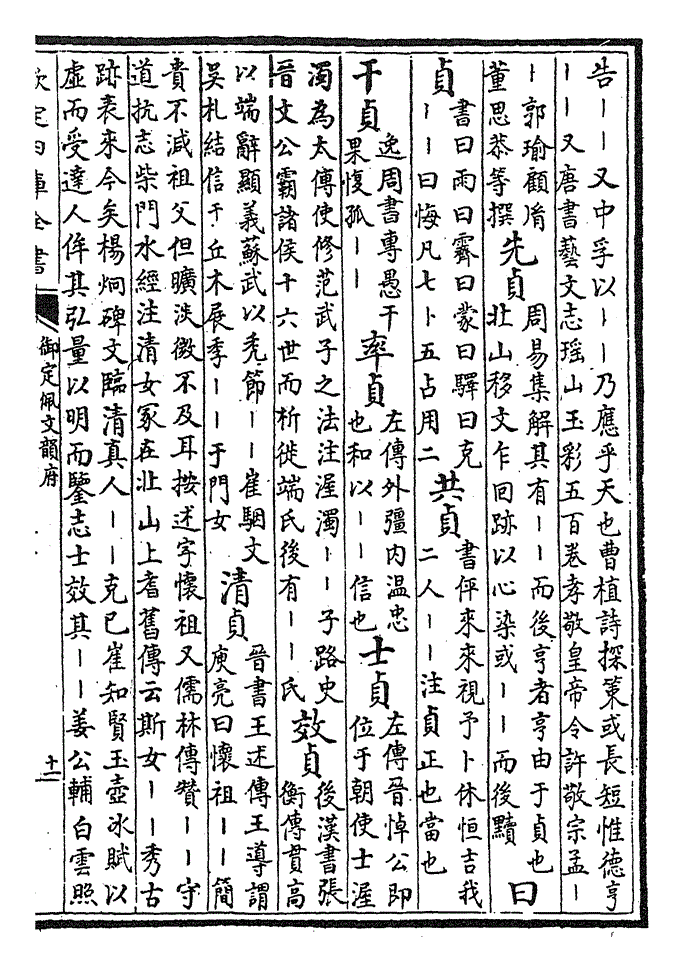 告——又中孚以——乃應乎天也曹植詩探䇿或長短惟德亨
——又唐書藝文志瑶山玉彩五百卷孝敬皇帝令許敬宗孟—
—郭瑜顧胤
董思恭等撰
先貞
周易集解其有——而後亨者亨由于貞也
北山移文乍回跡以心染或——而後黷
曰
貞
書曰雨曰霽曰蒙曰驛曰克
——曰悔凡七卜五占用二
共貞
書伻來來視予卜休恒吉我
二人——注貞正也當也
干貞
逸周書專愚干
果愎孤——
率貞
左傳外彊内温忠
也和以——信也
士貞
左傳晉悼公即
位于朝使士渥
濁為太傅使修范武子之法注渥濁——子路史
晉文公霸諸侯十六世而析徙端氏後有——氏
效貞
後漢書張
衡傳貫高
以端辭顯義蘇武以秃節——崔駰文
吳札結信于丘木展季——于門女
清貞
晉書王述傳王導謂
庾亮曰懷祖——簡
貴不減祖父但曠淡微不及耳按述字懷祖又儒林傳贊——守
道抗志柴門水經注清女冢在北山上耆舊傳云斯女——秀古
跡表來今矣楊炯碑文臨清真人——克已崔知賢玉壺冰賦以
虛而受達人侔其弘量以明而鑒志士效其——姜公輔白雲照
欽定四庫全書
御定佩文韻府
十二